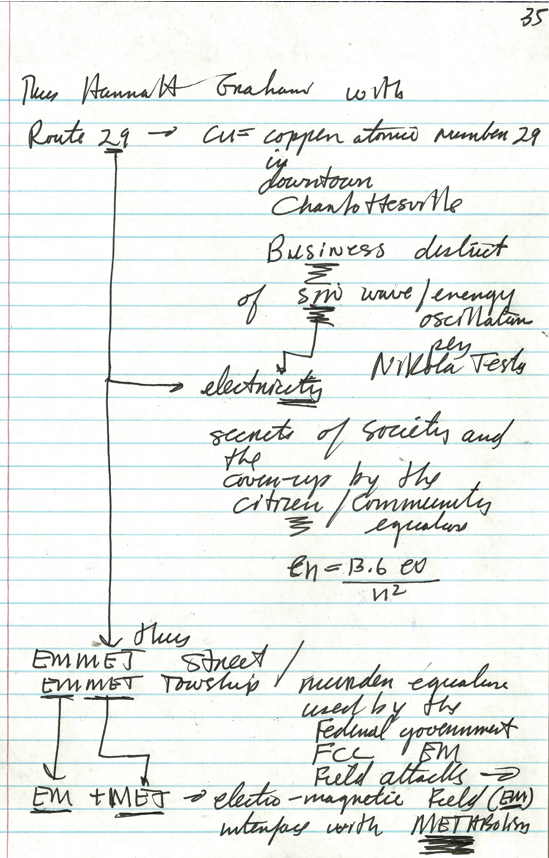 35
Thus Hannah Graham with
Route 29 → Cu= copper atomic number 29
in
downtown
Charlottesville
Business district
of sin wave/energy
oscillation
per
Nikola Tesla
electricity
secrets of society and
the
cover-up by the
citizen/community
equation
En = 13.6 eV
n²
thus
EMMET Street/
EMMET Towship/ murder equation
used by the
Federal government
FCC EM
Field attacks →
EM + MET → electro-magnetic Field (EM)
interface with METABolism